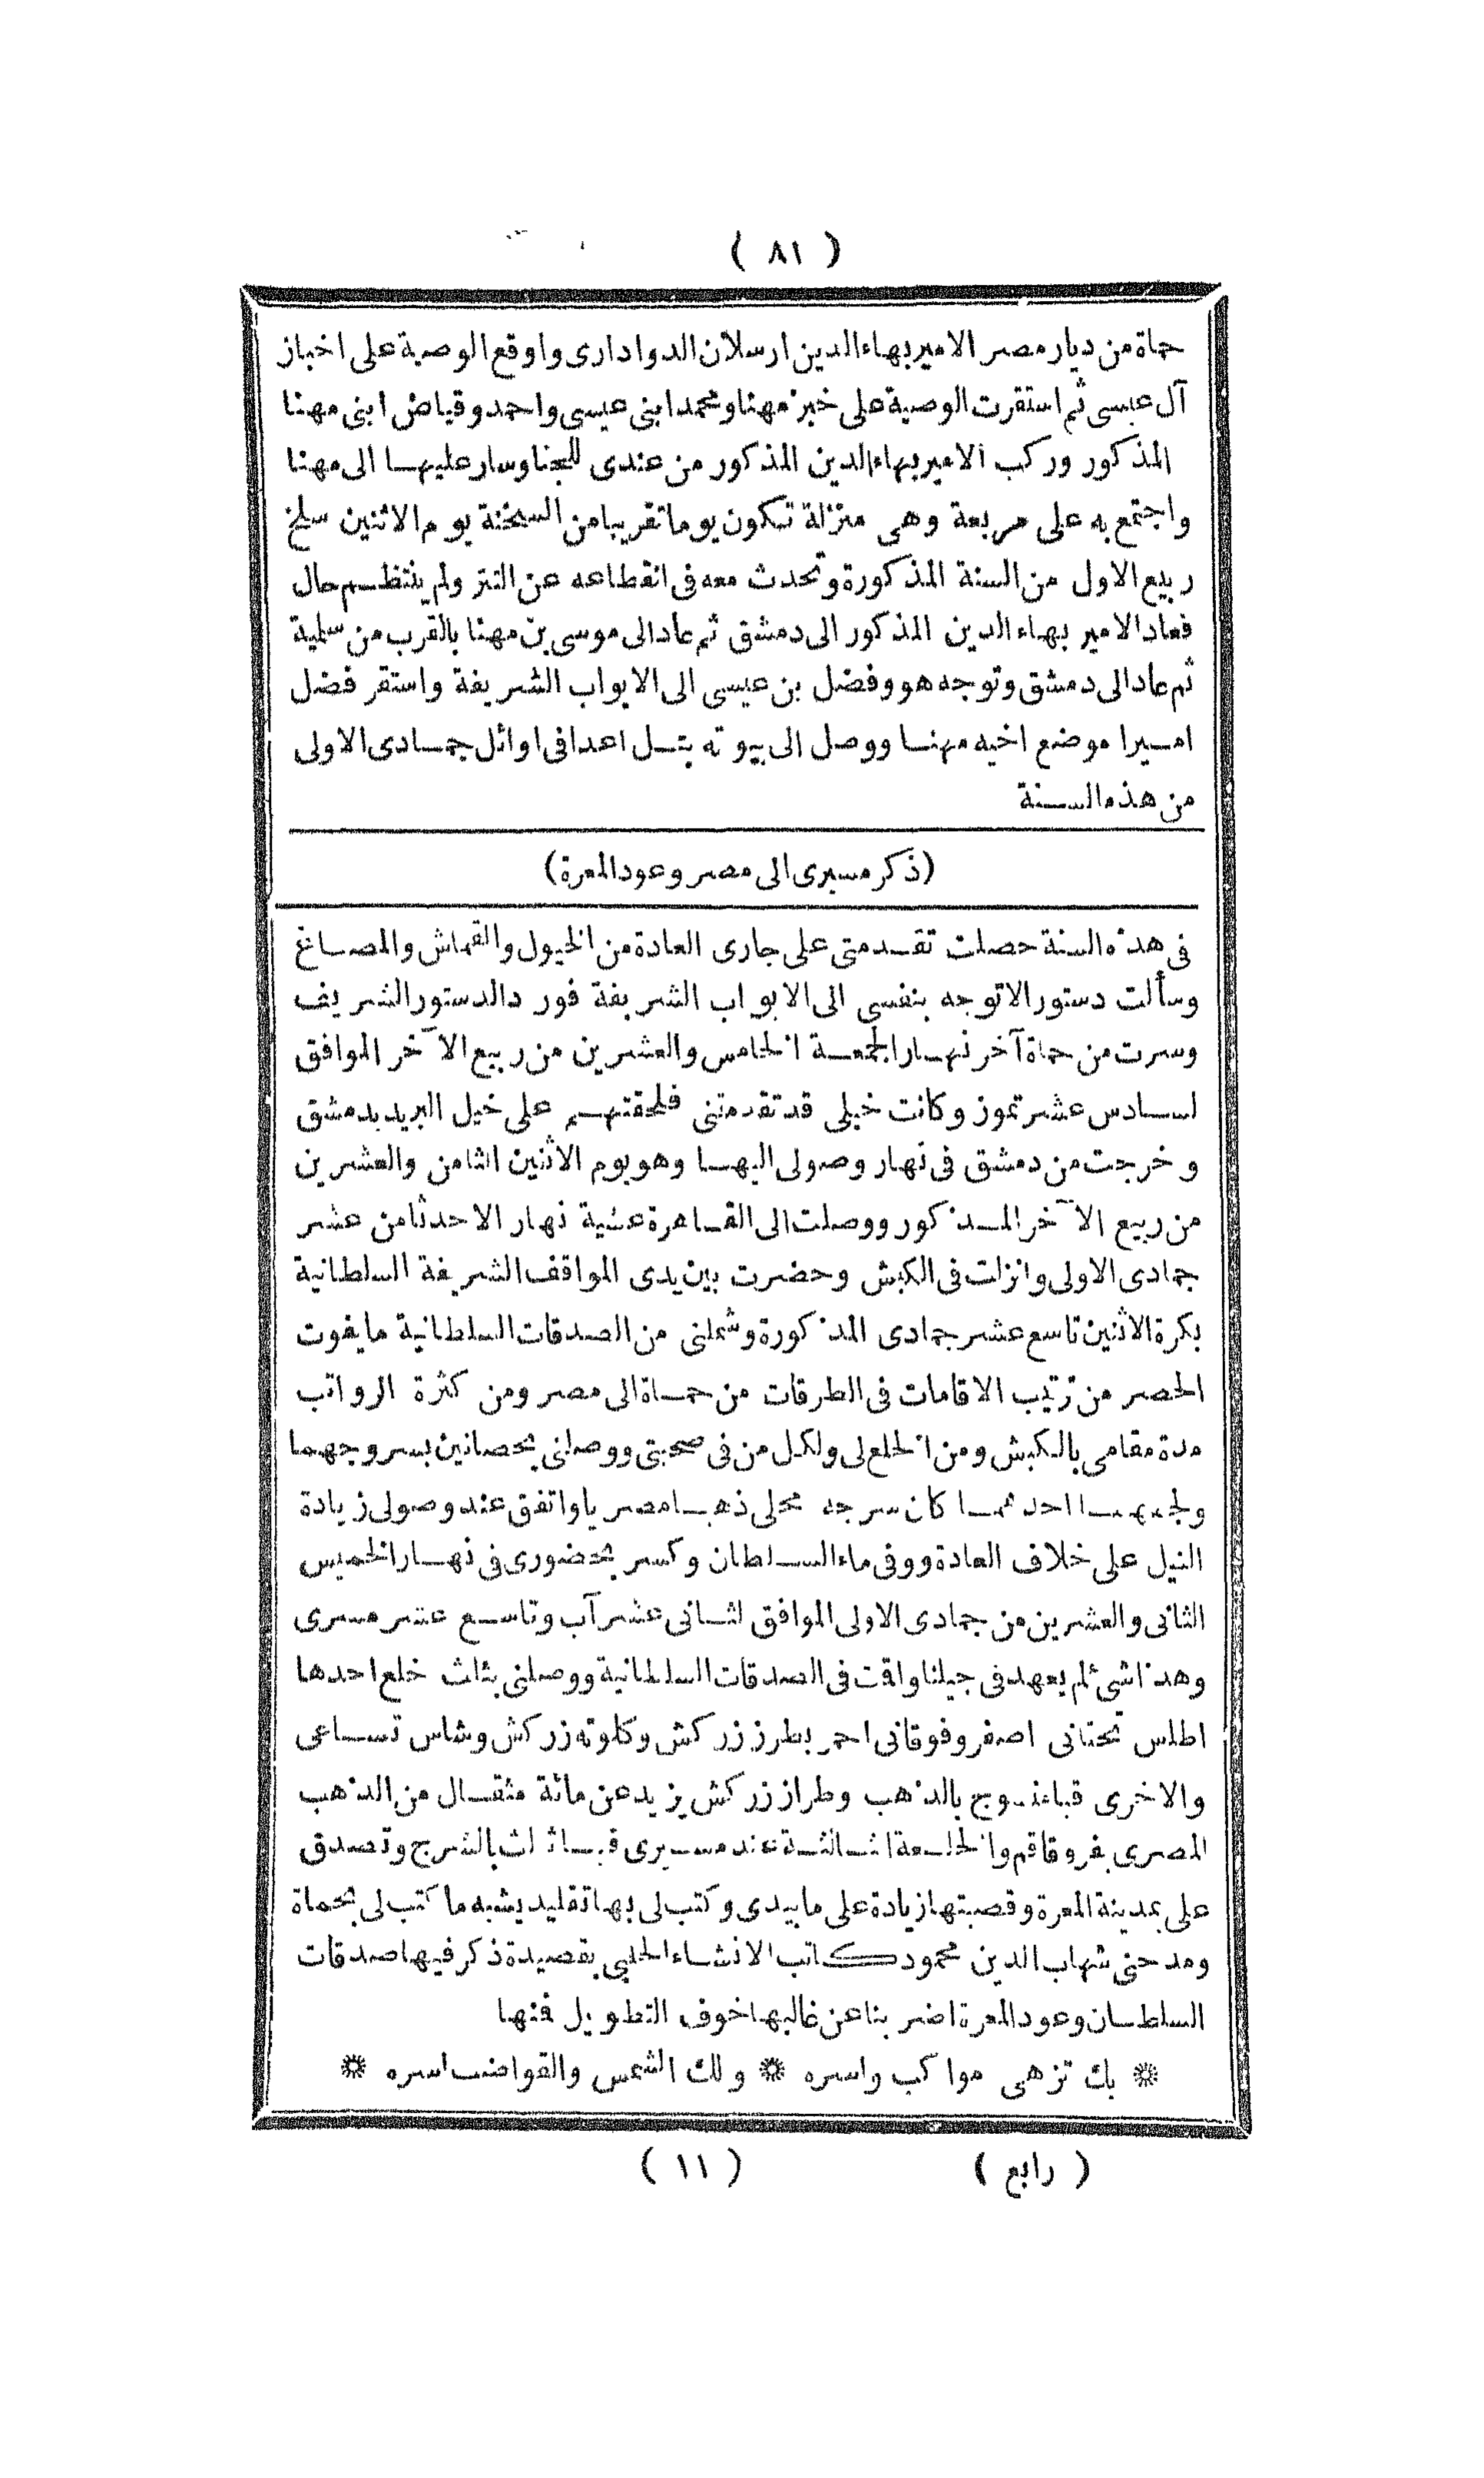 ( ٨١ )
حماة من ديار مصر الامير بهاء الدين ارسلان الدوادارى واوقع الوصية على اخباز
آل عيسى ثم استقرت الوصية على خبز مهنا ومحمد ابنى عيسى واحمد وفياض ابنى مهنا
المذكور وركب الامير بهاء الدين المذكور من عندى الهجنا وسار عليها الى مهنا
واجتمع به على مربعة وهى منزلة تكون يوما تقريبا من السخنة يوم الاثنين سلخ
ربيع الاول من السنة المذكورة وتحدث معه فى انقطاعه عن التتر ولم ينتظم حال
فعاد الامير بهاء الدين المذكور الى دمشق ثم عاد الى موسى بن مهنا بالقرب من سلمية
ثم عاد الى دمشق وتوجه هو وفضل بن عيسى الى الابواب الشريفة واستقر فضل
اميرا موضع اخيه مهنا ووصل الى بيوته بتل اعدا فى اوائل جمادى الاولى
من هذه السنة
(ذكر مسيرى الى مصر وعود المعرة)
فى هذه السنة حصلت تقدمتى على جارى العادة من الخيول والقماش والمصاغ
وسألت دستورا لاتوجه بنفسى الى الابواب الشريفة فورد الدستور الشريف
وسرت من حماة آخر نهار الجمعة الخامس والعشرين من ربيع الآخر الموافق
لسادس عشر تموز وكانت خيلى قد تقدمتنى فلحقتهم على خيل البريد بدمشق
وخرجت من دمشق فى نهار وصولى اليها وهو يوم الاثنين الثامن والعشرين
من ربيع الآخر المذكور ووصلت الى القاهرة عشية نهار الاحد ثامن عشر
جمادى الاولى وانزلت فى الكبش وحضرت بين يدى المواقف الشريفة السلطانية
بكرة الاثنين تاسع عشر جمادى المذكورة وشملنى من الصدقات السلطانية ما يفوت
الحصر من ترتيب الاقامات فى الطرقات من حماة الى مصر ومن كثرة الرواتب
مدة مقامى بالكبش ومن الخلع لى ولكل من فى صحبتى ووصلنى بحصانين بسروجهما
ولجمهما احدهما كان سرجه محلى ذهبا مصريا واتفق عند وصولى زيادة
النيل على خلاف العادة ووفى ماء السلطان وكسر بحضورى فى نهار الخميس
الثانى والعشرين من جمادى الاولى الموافق لثانى عشر آب وتاسع عشر مسرى
وهذا شئ لم يعهد فى جيلنا واقمت فى الصدقات السلطانية ووصلنى بثلث خلع احدها
اطلس تحتانى اصفر وفوقانى احمر بطرز زركش وكلوته زركش وشاس تساعى
والاخرى قباء منسوج بالذهب وطراز زركش يزيد عن مائة مثقال من الذهب
المصرى بفرو قاقم والخلعة الثالثة عند مسيرى قباء ثالث بالشرج وتصدق
على بمدينة المعرة وقصبتها زيادة على ما بيدى وكتب لى بها تقليد يشبه ما كتب لى بحماة
ومدحنى شهاب الدين محمود كاتب الانشاء الحلبى بقصيدة ذكر فيها صدقات
السلطان وعود المعرة اضربنا عن غالبها خوف التطويل فمنها
❊ بك تزهى مواكب واسره ❊ ولك الشمس والقواضب اسره ❊
( رابع ) ( ١١ )